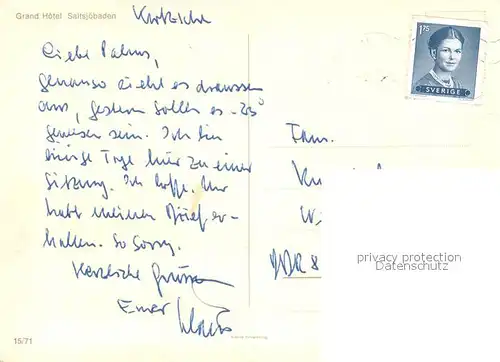 Grand Hôtel Saltsjöbaden
Liebe Palms,
genauso sieht es draussen
aus, gestern sollen es -25°
gewesen sein. Ich bin
einige Tage hier zu einer
Sitzung. Ich hoffe, Ihr
habt meinen Brief er-
halten. So sorry.
Herzliche Grüsse
Euer Klaus
1.75
SVERIGE
Fam.
DDR 8
privacy protection
Datenschutz
15/71